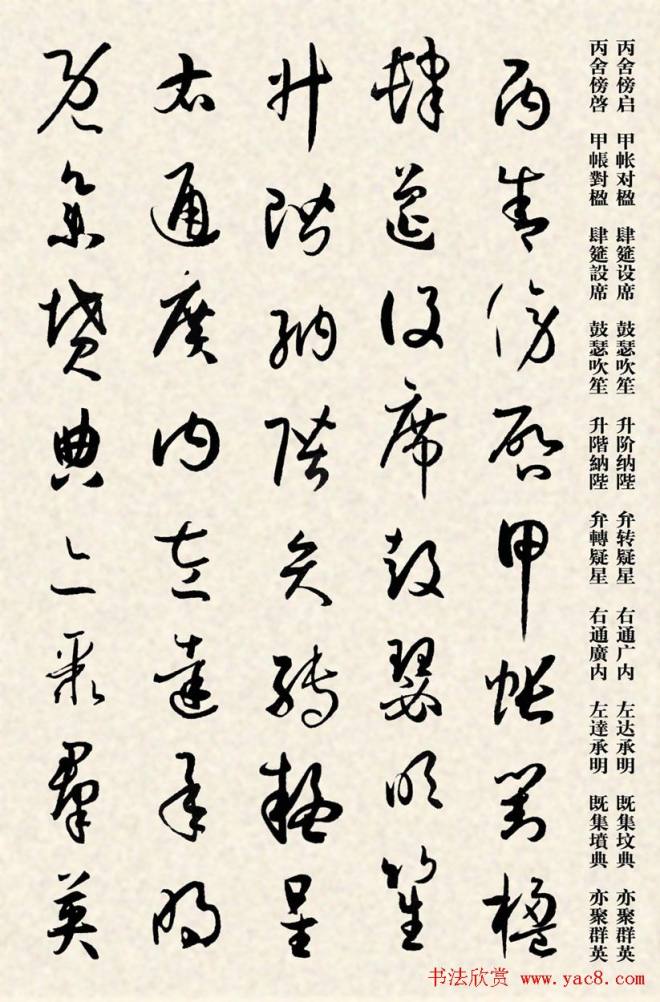 丙舍傍启 甲帐对楹 肆筵设席 鼓瑟吹笙 升阶纳陛 弁转疑星 右通广内 左达承明 既集坟典 亦聚群英
丙舍傍啓 甲帳對楹 肆筵設席 鼓瑟吹笙 升階納陛 弁轉疑星 右通廣内 左達承明 既集墳典 亦聚群英
丙舍傍啓甲帳對楹
肆筵設席鼓瑟吹笙
升階納陛弁轉疑星
右通廣内左達承明
既集墳典亦聚群英
书法欣赏 www.yac8.com